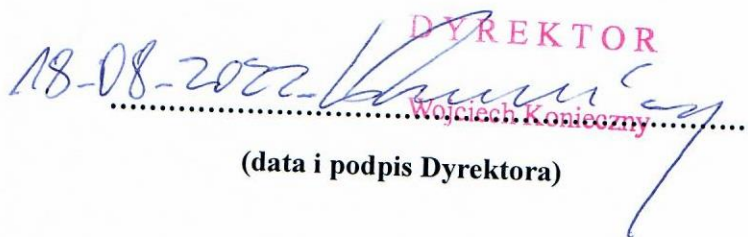 DYREKTOR
18-08-2022
Wojciech Konieczny
(data i podpis Dyrektora)